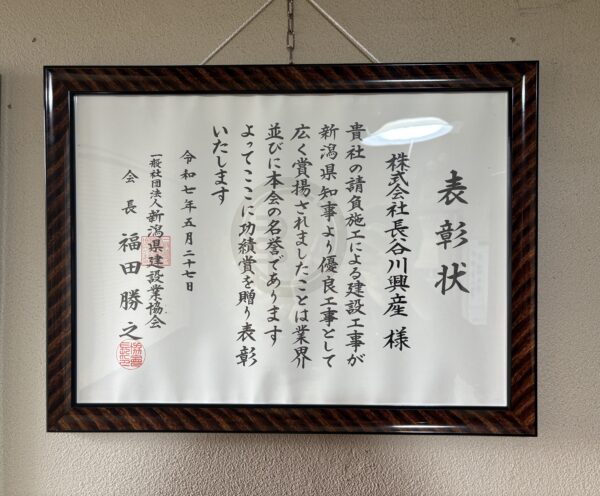 表彰状
株式会社長谷川興産 様
貴社の請負施工による建設工事が
新潟県知事より優良工事として
広く賞揚されましたことは業界
並びに本会の名誉であります
よってここに功績賞を贈り表彰
いたします
令和七年五月二十七日
一般社団法人新潟県建設業協会
会長 福田勝之